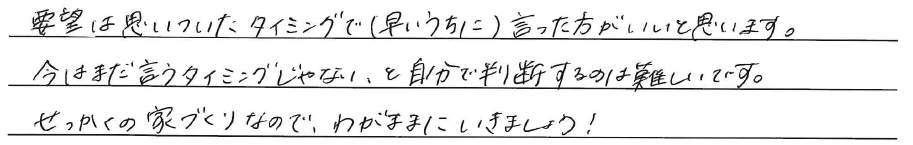 要望は思いついたタイミングで(早いうちに)言った方がいいと思います。
今はまだ言うタイミングじゃない、と自分で判断するのは難しいです。
せっかくの家づくりなので、わがままにいきましょう!